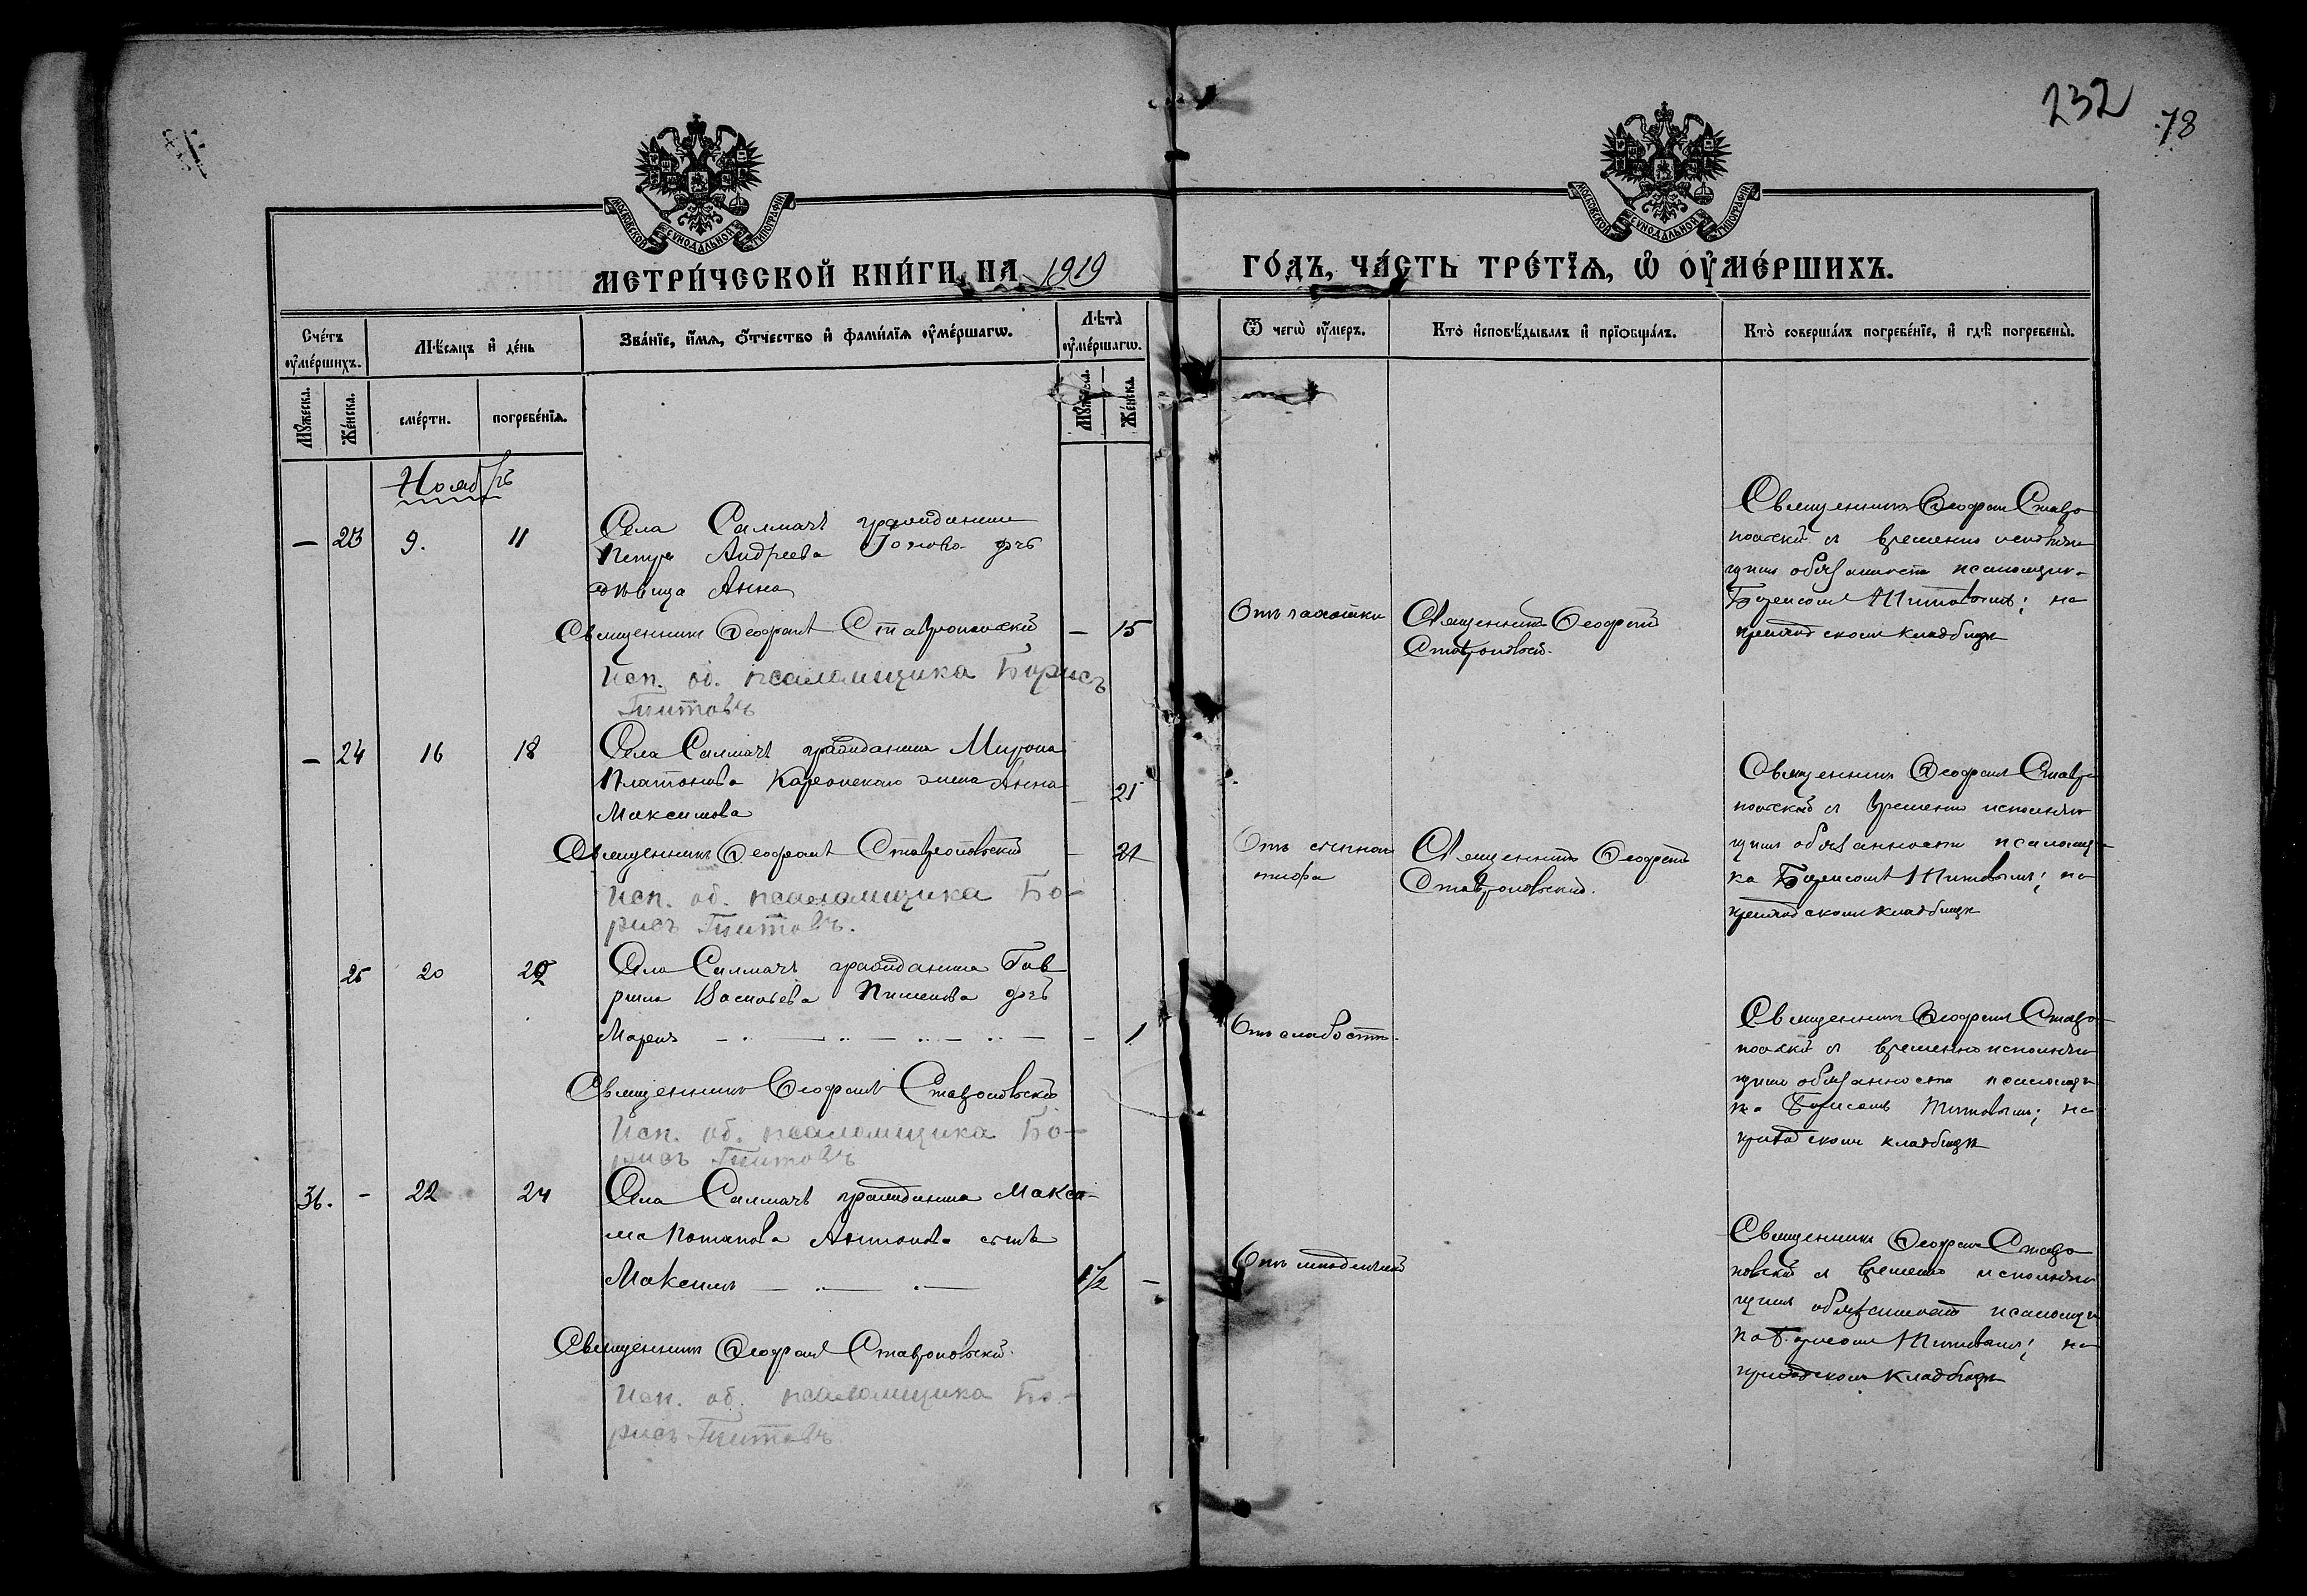 232
78
МОСКОВСКОЙ СѴНОДАЛЬНОЙ ТИПОГРАФІИ
МОСКОВСКОЙ СѴНОДАЛЬНОЙ ТИПОГРАФІИ
МЕТРИ́ЧЕСКОЙ КНИ́ГИ, НА 1919
ГО́ДЪ, ЧА́СТЬ ТРЕ́ТЇѦ, Ѡ҆ ОУ҆МЕ́РШИХЪ.
Сче́тъ оу҆ме́ршихъ.
Мꙋ́жеска.
Же́нска.
Мѣ́сѧцъ и҆ де́нь
сме́рти.
погребе́нїѧ.
Зва́нїе, и҆́мѧ, ѻ҆́тчество и҆ фами́лїѧ оу҆ме́ршагѡ.
Лѣта̀ оу҆ме́ршагѡ.
Мꙋ́жеска.
Же́нска.
Ѿ чегѡ̀ оу҆́меръ.
Кто̀ и҆сповѣ́дывалъ и҆ прїѡбща́лъ.
Кто̀ соверша́лъ погребе́нїе, и҆ гдѣ̀ погребены̀.
Ноябрь
— 23 9. 11
Села Салмачъ гражданина
Петра Андреева дочь
дѣвица Анна
Священникъ Ѳеофанъ Ставропольскій — 15
Исп. об. псаломщика Борисъ
Титовъ
Отъ чахотки
Священникъ Ѳеофанъ
Священникъ Ѳеофанъ Ставро
польскій и временно исполняю
щимъ обязанности псаломщик.
Борисомъ Титовымъ; на
приходскомъ кладбищѣ
— 24 16 18
Села Салмачъ гражданина Мирона
Платонова жена Анна 21
Максимова
Священникъ Ѳеофанъ — 21
Исп. об. псаломщика Бо-
рисъ Титовъ.
Отъ сыпного
тифа
Священникъ Ѳеофанъ
Священникъ Ѳеофанъ Ставро
польскій и временно исполняю
щимъ обязанности псаломщи-
ка Борисомъ Титовымъ; на
приходскомъ кладбищѣ
25 20 22
Села Салмачъ гражданина Гав
рила Васильева Пименова дочь
Марія — 1
Священникъ Ѳеофанъ
Исп. об. псаломщика Бо-
рисъ Титовъ
Отъ слабости.
Священникъ Ѳеофанъ Ставро
польскій и временно исполняю
щимъ обязанности псаломщи
ка Борисомъ Титовымъ; на
приходскомъ кладбищѣ
36. — 22 24
Села Салмачъ гражданина Макси-
ма Потапова Антонова сынъ
Максимъ 1½ —
Священникъ Ѳеофанъ
Исп. об. псаломщика Бо-
рисъ Титовъ
Отъ
Священникъ Ѳеофанъ Ставро
польскій и временно исполняю
щимъ обязанности псаломщи
ка Борисомъ Титовымъ; на
приходскомъ кладбищѣ